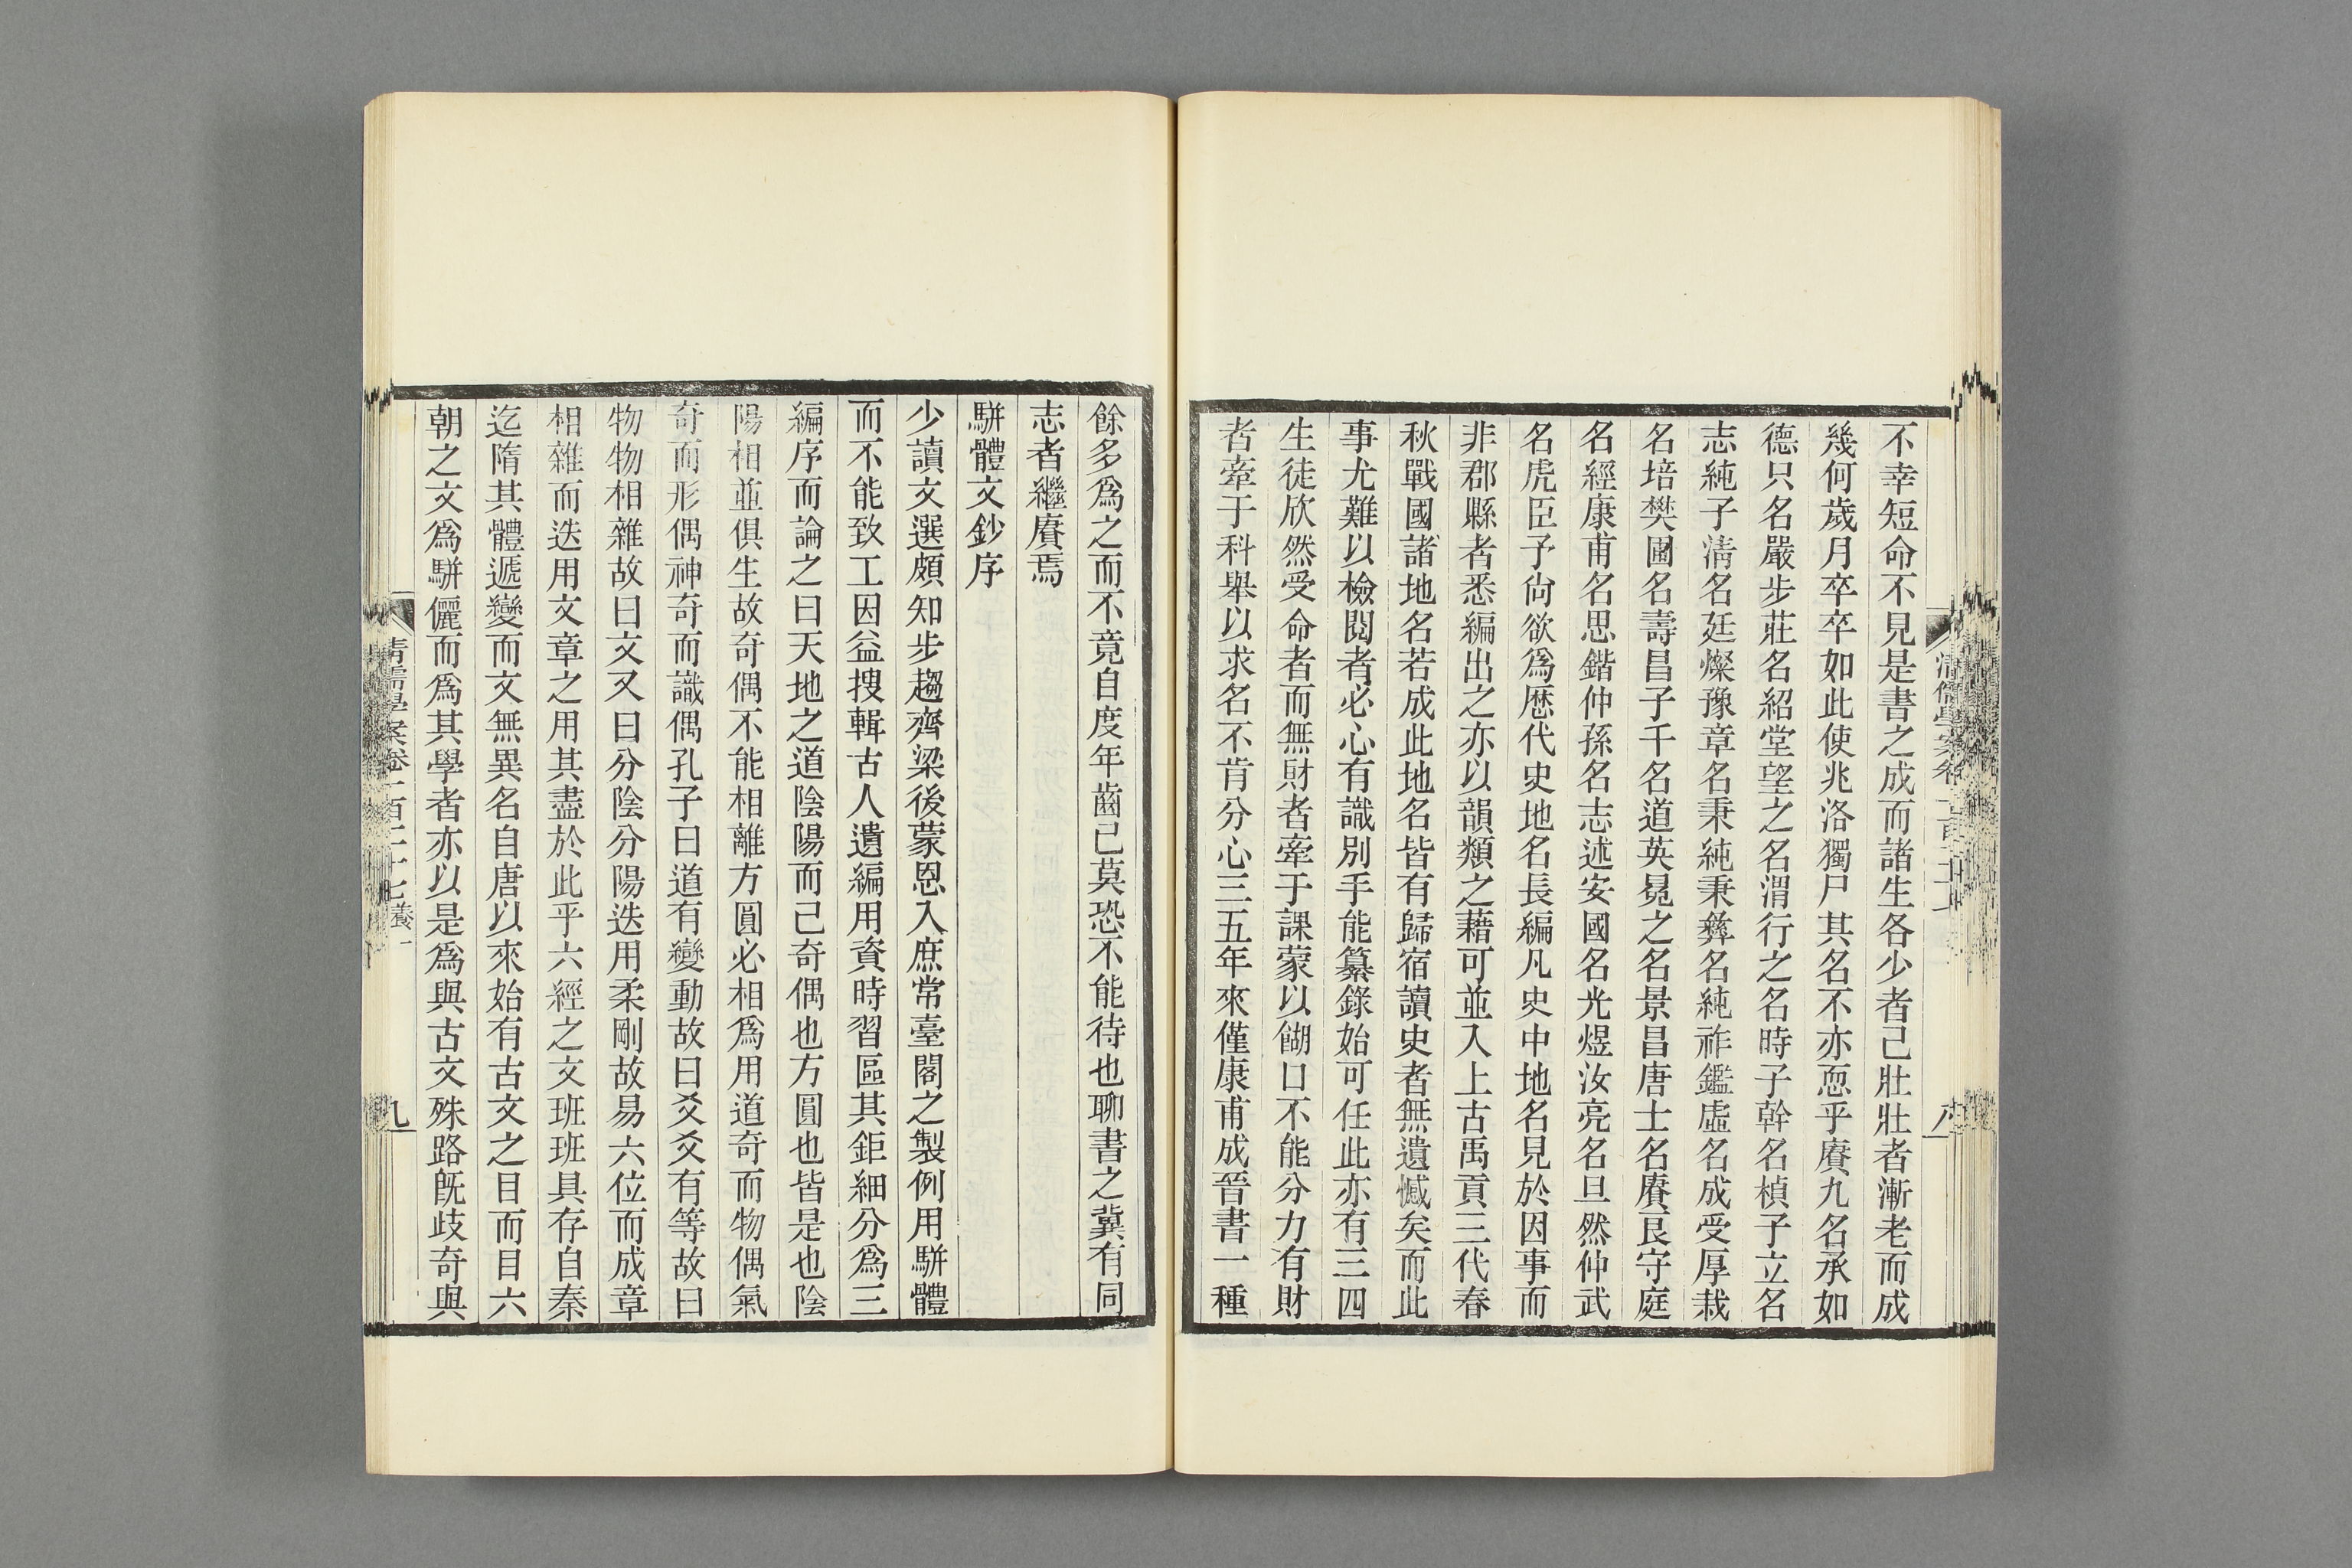 不幸短命不見是書之成而諸生各少者已壯壯者漸老而成
幾何歲月卒卒如此使兆洛獨尸其名不亦恧乎賡九名承如
德只名嚴步莊名紹堂望之名渭行之名時子幹名楨子立名
志純子淸名廷燦豫章名秉純秉彝名純祚鑑虛名成受厚栽
名培樊圃名壽昌子千名道英冕之名景昌唐士名賡艮守庭
名經康甫名思鍇仲孫名志述安國名光煜汝亮名旦然仲武
名虎臣予尙欲爲歷代史地名長編凡史中地名見於因事而
非郡縣者悉編出之亦以韻類之藉可並入上古禹貢三代春
秋戰國諸地名若成此地名皆有歸宿讀史者無遺憾矣而此
事尤難以檢閱者必心有識別手能纂錄始可任此亦有三四
生徒欣然受命者而無財者牽于課蒙以餬口不能分力有財
者牽于科舉以求名不肯分心三五年來僅康甫成晉書一種
餘多爲之而不竟自度年齒已莫恐不能待也聊書之冀有同
志者繼賡焉
駢體文鈔序
少讀文選頗知步趨齊梁後蒙恩入庶常臺閣之製例用駢體
而不能致工因益搜輯古人遺編用資時習區其鉅細分爲三
編序而論之曰天地之道陰陽而已奇偶也方圓也皆是也陰
陽相並俱生故奇偶不能相離方圓必相爲用道奇而物偶氣
奇而形偶神奇而識偶孔子曰道有變動故曰爻爻有等故曰
物物相雜故曰文又曰分陰分陽迭用柔剛故易六位而成章
相雜而迭用文章之用其盡於此乎六經之文班班具存自秦
迄隋其體遞變而文無異名自唐以來始有古文之目而目六
朝之文爲駢儷而爲其學者亦以是爲與古文殊路旣歧奇與
淸儒學案卷一百二十七養一
九